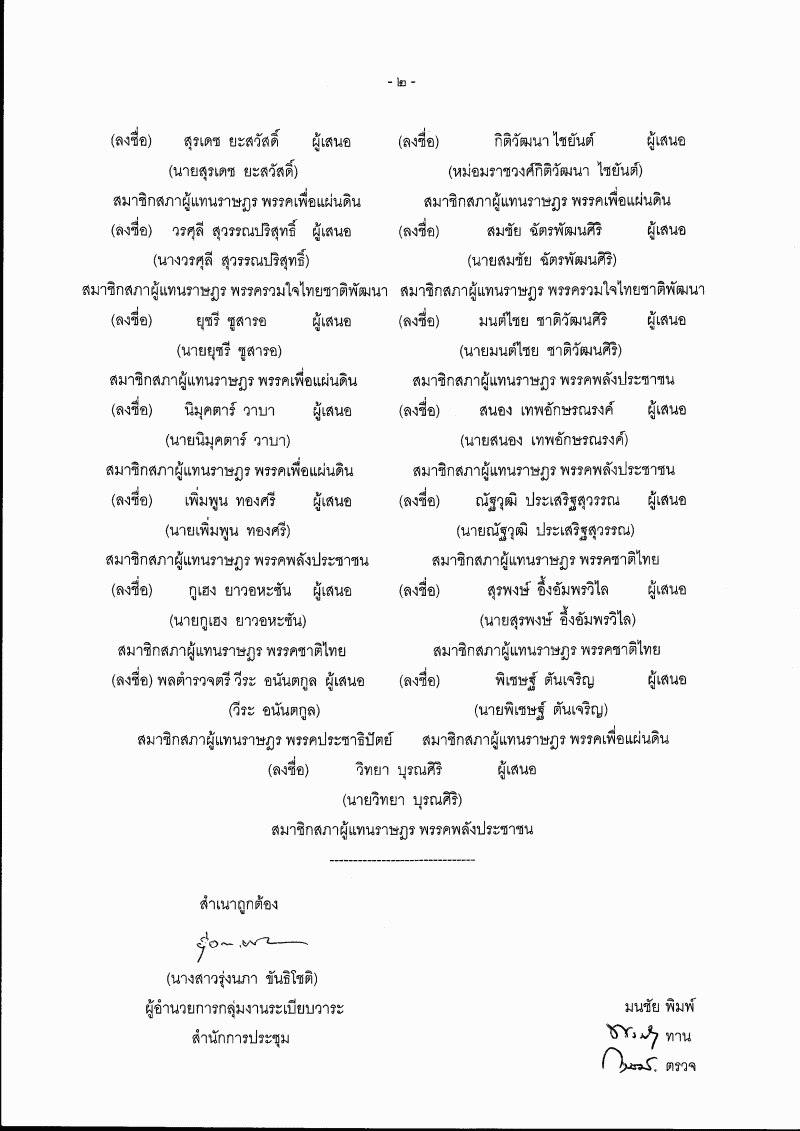 - ๒ -
(ลงชื่อ) สุรเดช ยะสวัสดิ์ ผู้เสนอ (ลงชื่อ) กิติวัฒนา ไชยันต์ ผู้เสนอ
(นายสุรเดช ยะสวัสดิ์) (หม่อมราชวงศ์กิติวัฒนา ไชยันต์)
สมาชิกสภาผู้แทนราษฎร พรรคเพื่อแผ่นดิน สมาชิกสภาผู้แทนราษฎร พรรคเพื่อแผ่นดิน
(ลงชื่อ) วรศุลี สุวรรณปริสุทธิ์ ผู้เสนอ (ลงชื่อ) สมชัย ฉัตรพัฒนศิริ ผู้เสนอ
(นางวรศุลี สุวรรณปริสุทธิ์) (นายสมชัย ฉัตรพัฒนศิริ)
สมาชิกสภาผู้แทนราษฎร พรรครวมใจไทยชาติพัฒนา สมาชิกสภาผู้แทนราษฎร พรรครวมใจไทยชาติพัฒนา
(ลงชื่อ) ยุซรี ซูสารอ ผู้เสนอ (ลงชื่อ) มนต์ไชย ชาติวัฒนศิริ ผู้เสนอ
(นายยุซรี ซูสารอ) (นายมนต์ไชย ชาติวัฒนศิริ)
สมาชิกสภาผู้แทนราษฎร พรรคเพื่อแผ่นดิน สมาชิกสภาผู้แทนราษฎร พรรคพลังประชาชน
(ลงชื่อ) นิมุคตาร์ วาบา ผู้เสนอ (ลงชื่อ) สนอง เทพอักษรณรงค์ ผู้เสนอ
(นายนิมุคตาร์ วาบา) (นายสนอง เทพอักษรณรงค์)
สมาชิกสภาผู้แทนราษฎร พรรคเพื่อแผ่นดิน สมาชิกสภาผู้แทนราษฎร พรรคพลังประชาชน
(ลงชื่อ) เพิ่มพูน ทองศรี ผู้เสนอ (ลงชื่อ) ณัฐวุฒิ ประเสริฐสุวรรณ ผู้เสนอ
(นายเพิ่มพูน ทองศรี) (นายณัฐวุฒิ ประเสริฐสุวรรณ)
สมาชิกสภาผู้แทนราษฎร พรรคพลังประชาชน สมาชิกสภาผู้แทนราษฎร พรรคชาติไทย
(ลงชื่อ) กูเฮง ยาวอหะซัน ผู้เสนอ (ลงชื่อ) สุรพงษ์ อึ้งอัมพรวิไล ผู้เสนอ
(นายกูเฮง ยาวอหะซัน) (นายสุรพงษ์ อึ้งอัมพรวิไล)
สมาชิกสภาผู้แทนราษฎร พรรคชาติไทย สมาชิกสภาผู้แทนราษฎร พรรคชาติไทย
(ลงชื่อ) พลตำรวจตรี วีระ อนันตกูล ผู้เสนอ (ลงชื่อ) พิเชษฐ์ ตันเจริญ ผู้เสนอ
(วีระ อนันตกูล) (นายพิเชษฐ์ ตันเจริญ)
สมาชิกสภาผู้แทนราษฎร พรรคประชาธิปัตย์ สมาชิกสภาผู้แทนราษฎร พรรคเพื่อแผ่นดิน
(ลงชื่อ) วิทยา บุรณศิริ ผู้เสนอ
(นายวิทยา บุรณศิริ)
สมาชิกสภาผู้แทนราษฎร พรรคพลังประชาชน
-------------------------------
สำเนาถูกต้อง
(นางสาวรุ่งนภา ขันธิโชติ)
ผู้อำนวยการกลุ่มงานระเบียบวาระ
สำนักการประชุม
มนชัย พิมพ์
ทาน
ตรวจ